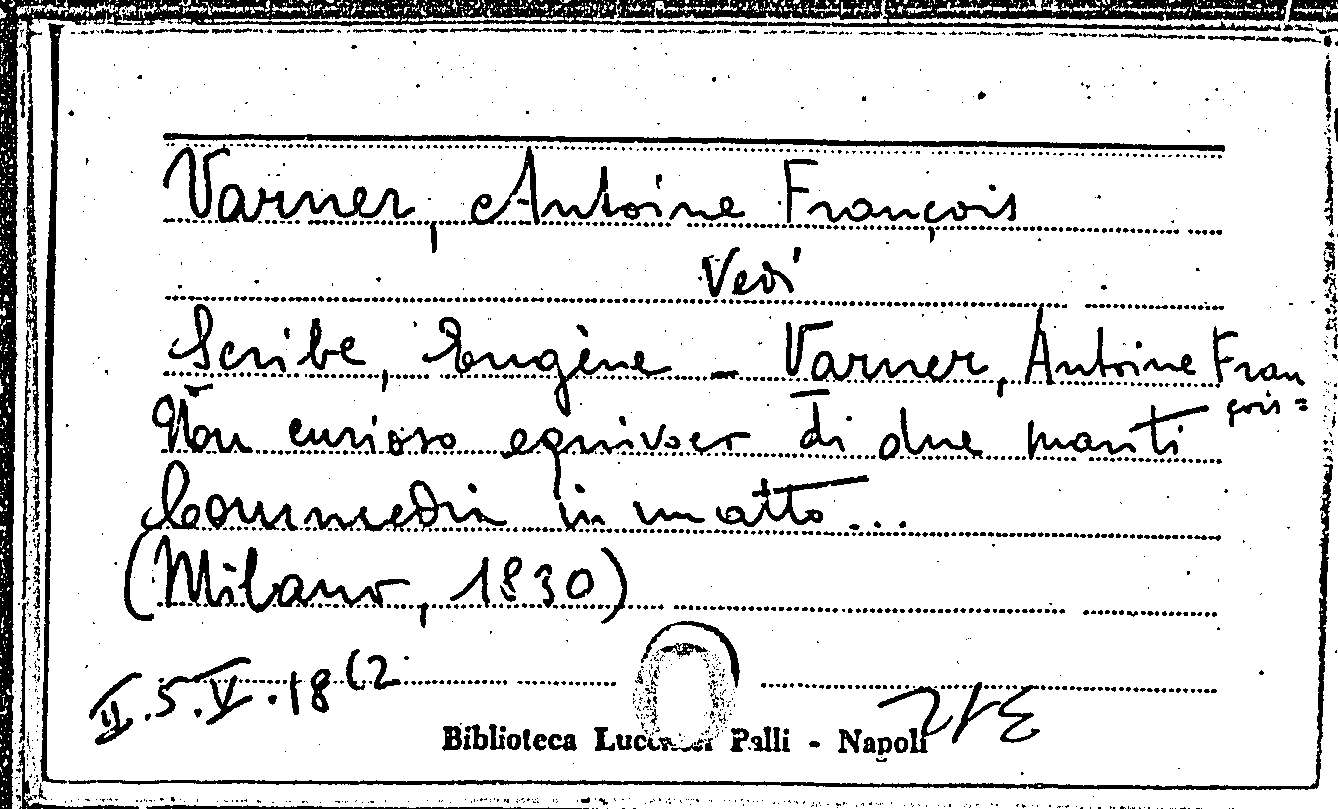 Varner, Antoine François
Vedi
Scribe, Eugène - Varner, Antoine Fran
çois =
curioso equivoco di due mariti
Commedia in un atto...
(Milano, 1830)
II.5.V.18 (2
Biblioteca Palli - Napoli